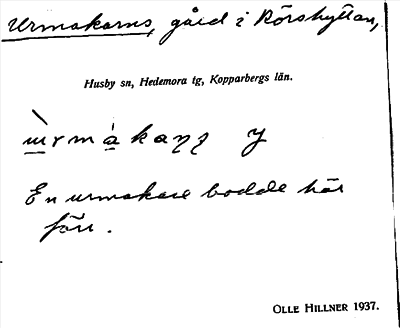 Urmakarns, gård i Rörshyttan,
Husby sn, Hedemora tg, Kopparbergs län.
En urmakare bodde här
förr.
OLLE HILLNER 1937.